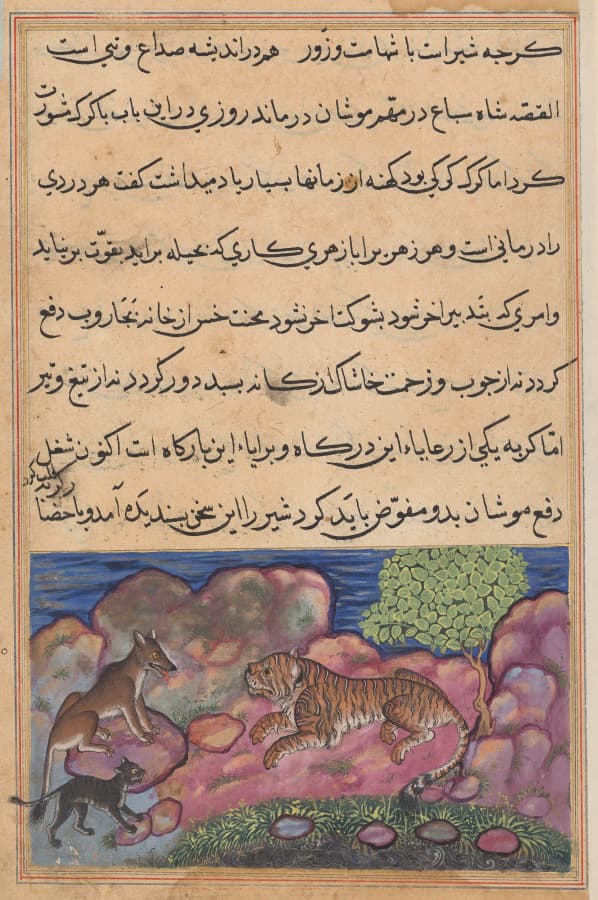 کرجه شیراست با شهامت وزور هم در اندیشه صداع وتبی است
القصه شاه سباع در مهّم موشان درماند روزی دراین باب باکرک مشورت
کرد اما کرک کرکی بود کهنه از زمانها بسیار یاد میداشت کفت هر دردی
را درمانی است و هر زهر برا بازهری کاری که بحیله براید بقوّت برنیاید
وامری که بتدبیر اخر شود بشوکت اخر نشود محنت خس از خانه بجاروب دفع
کردد نه از جوب و زحمت خاشاک از کانه بسبد دور کردد نه از تیغ وتیر
امّا کربه یکی از رعایاء این درکاه و برایاء این بارکاه است اکنون شغل
دفع موشان بدو مفوّض باید کرد شیر را این سخن بسندیده آمد و باحضا
ر کربه